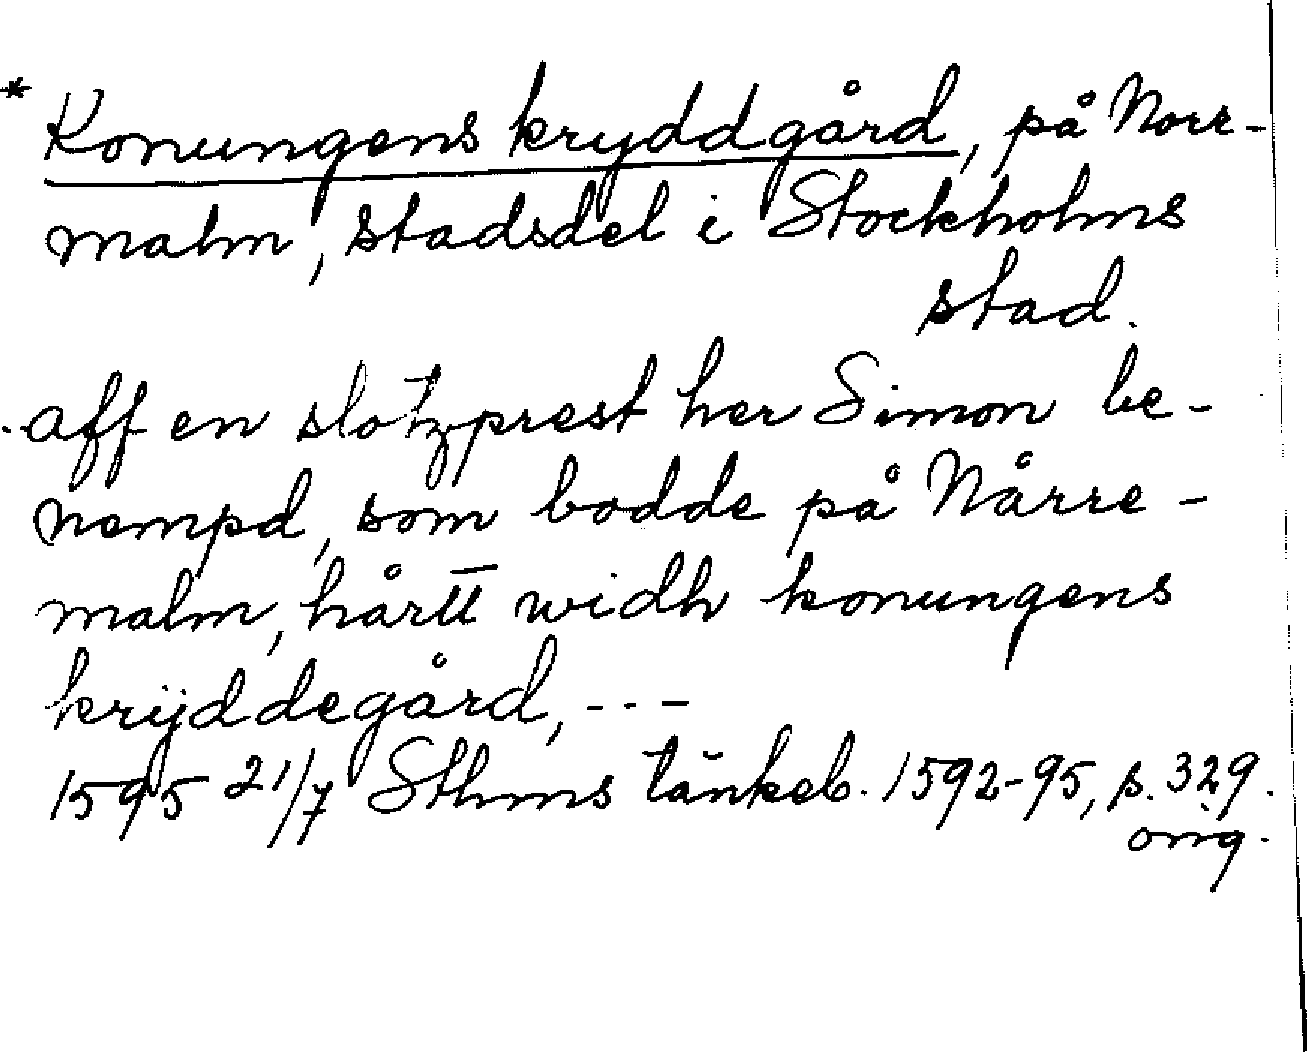 * Konungens kryddgård, på Norr-
malm, stadsdel i Stockholms
stad.
aff en slotzprest her Simon be-
nempd, som bodde på Nårre-
malm, hårtt widh konungens
krÿddegård, ---
1595 21/7 Sthms tänkeb. 1592-95, s. 329.
orig.